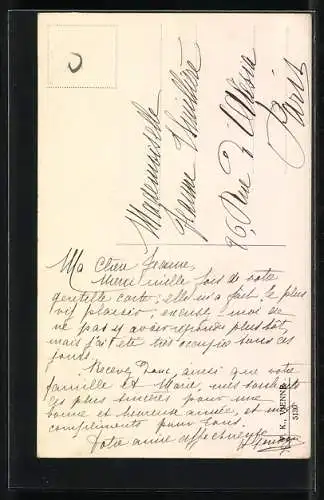 Mademoiselle
Jeanne Thuillier
96, Rue d'Alésia
Paris
Ma Chère Jeanne,
Merci mille fois de votre
gentille carte, elle m'a fait le plus
vif plaisir, excusez moi de
ne pas y avoir répondu plus tôt,
mais j'ai été très occupée tous ces
jours.
Recevez donc, ainsi que votre
famille et Marie, mes souhaits
les plus sincères pour une
bonne et heureuse année, et mes
compliments pour tous.
Votre amie affectueuse
K., VIENNE